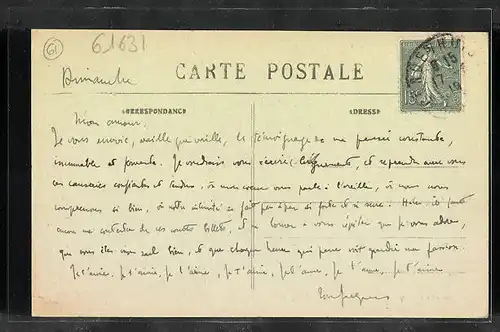 61
61631
Dimanche
CARTE POSTALE
CORRESPONDANCE
ADRESSE
15
Mon amour.
Je vous envoie, vaille que vaille, le témoignage de ma pensée constante,
immuable et fervente. Je voudrais vous écrire longuement, et reprendre avec vous
ces causeries confiantes et tendres, où mon cœur vous parle à l'oreille, où nous nous
comprenons si bien, où notre intimité se fait peu à peu si forte et si sûre. Hélas il faut
me contenter de ces courts billets, et me borner à vous répéter que je vous adore,
que vous êtes mon seul bien, et que chaque heure qui passe voit grandir ma passion.
Je t'aime, je t'aime, je t'aime, je t'aime, je t'aime, je t'aime, je t'aime